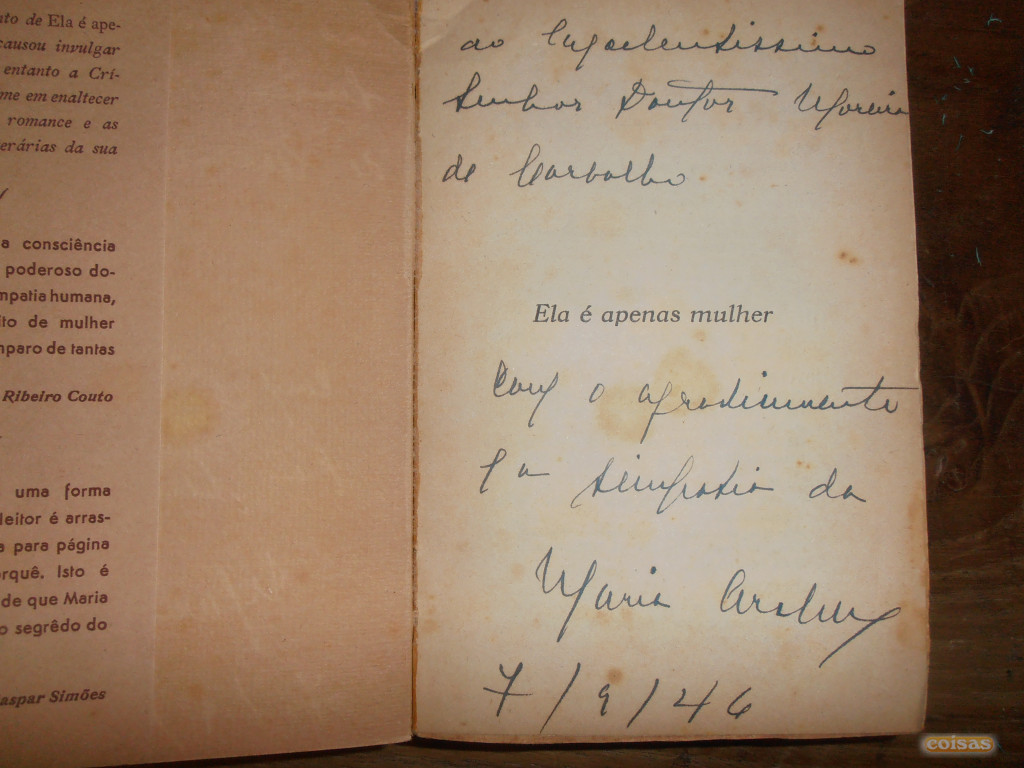 nto de Ela é ape-
causou invulgar
entanto a Crí-
me em enaltecer
romance e as
erárias da sua
a consciência
poderoso do-
mpatia humana,
ito de mulher
mparo de tantas
Ribeiro Couto
uma forma
leitor é arras-
a para página
orquê. Isto é
de que Maria
o segrêdo do
aspar Simões
ao Excelentissimo
Senhor Doutor Moreira
de Carvalho
Ela é apenas mulher
Com o agradecimento
e a simpatia da
Maria Archer
7/9/46
coisas